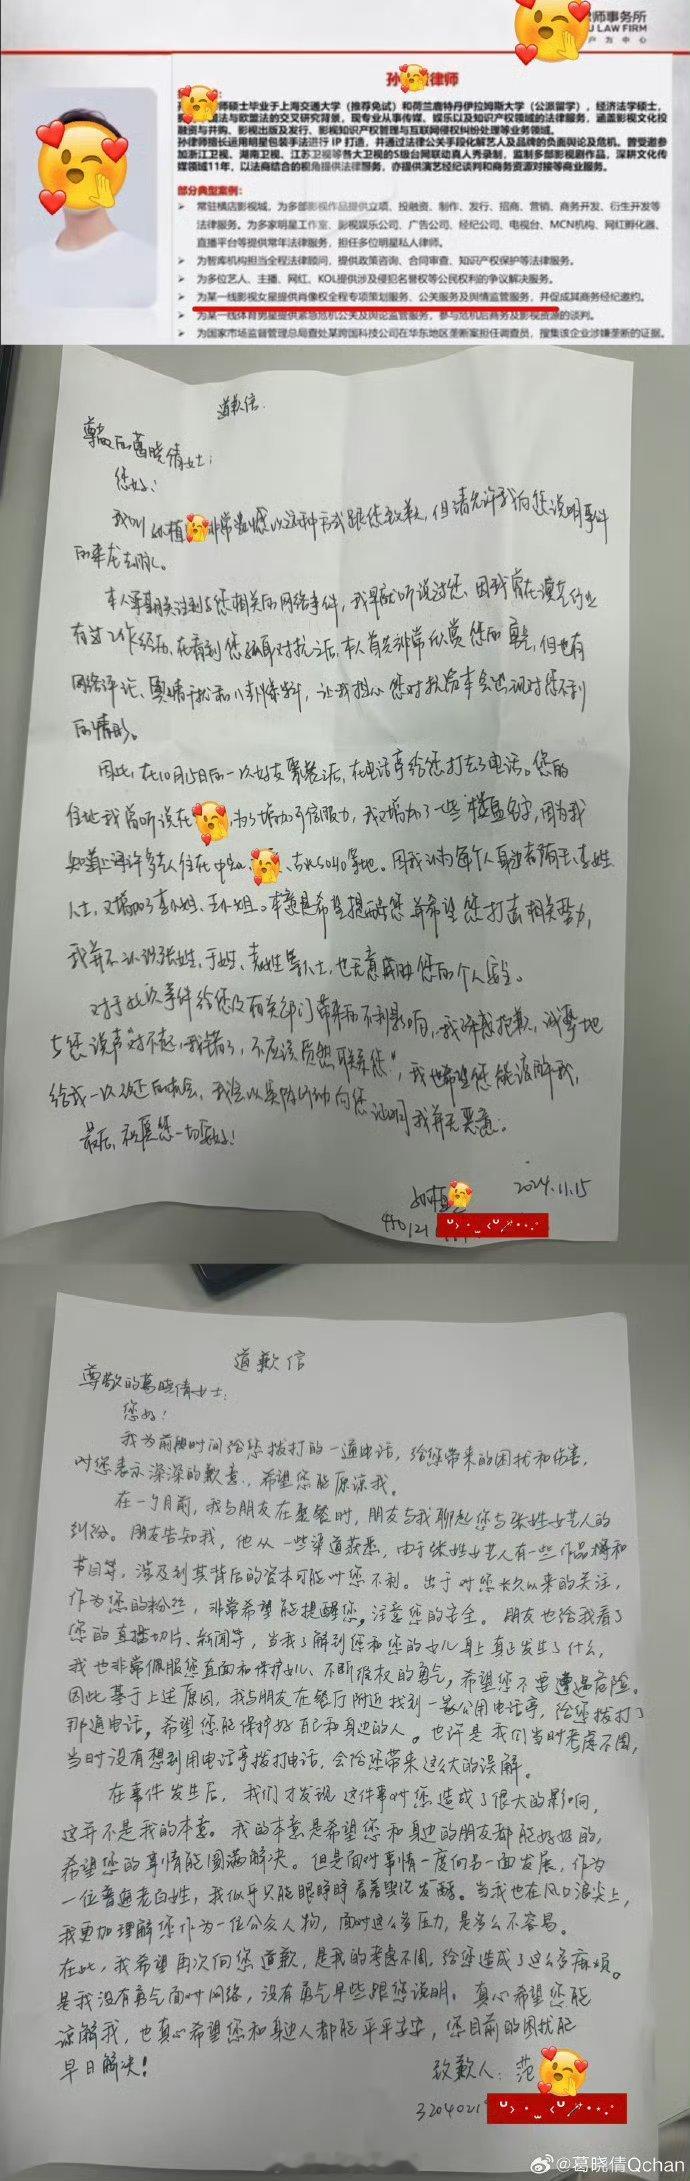 律师事务所
LAW FIRM
户 为 中 心
孙 律师
师硕士毕业于上海交通大学（推荐免试）和荷兰鹿特丹伊拉姆斯大学（公派留学），经济法学硕士，
法与欧盟法的交叉研究背景，现专业从事传媒、娱乐以及知识产权领域的法律服务，涵盖影视文化投
融资与并购、影视出版及发行、影视知识产权管理与互联网侵权纠纷处理等业务领域。
孙律师擅长运用明星包装手法进行 IP 打造，并通过法律公关手段化解艺人及品牌的负面舆论及危机。曾受邀参
加浙江卫视、湖南卫视、江苏卫视等各大卫视的S级台网联动真人秀录制，监制多部影视剧作品，深耕文化传
媒领域11年，以法商结合的视角提供法律服务，亦提供演艺经纪谈判和商务资源对接等商业服务。
部分典型案例：
➢ 常驻横店影视城，为多部影视作品提供立项、投融资、制作、发行、招商、营销、商务开发、衍生开发等
法律服务。为多家明星工作室、影视娱乐公司、广告公司、经纪公司、电视台、MCN机构、网红孵化器、
直播平台等提供常年法律服务，担任多位明星私人律师。
➢ 为智库机构担当全程法律顾问，提供政策咨询、合同审查、知识产权保护等法律服务。
➢ 为多位艺人、主播、网红、KOL提供涉及侵犯名誉权等公民权利的争议解决服务。
➢ 为某一线影视女星提供肖像权全程专项策划服务、公关服务及舆情监管服务，并促成其商务经纪邀约。
➢ 为某一线体育男星提供紧急危机公关及舆论监管服务，参与危机后商务及影视资源的谈判。
➢ 为国家市场监督管理总局查处某跨国科技公司在华东地区垄断案担任调查员，搜集该企业涉嫌垄断的证据。
道歉信.
尊敬的葛晓倩女士：
您好！
我叫孙植 非常 以这种方式跟您致歉，但请允许我向您说明事件
的来龙去脉。
本人早期关注到与您相关的网络事件，我早就听说过您，因我曾在演艺行业
有过工作经历，在看到您 对抗之后，本人首先非常欣赏您的勇气，但也有
网络评论、舆情干扰和 ，让我担心您对抗 会出现对您不利
的情形。
因此，在10月15日的一次好友聚餐之后，在电话亭给您打去了电话。您的
住址我曾听说在 ，为了增加可信服力，我又增加了一些"楼盘名字，因为我
知道 许多 人住在中 、 SOHO等地。因我认为每个人身边都有王、李姓
人士，又增加了李小姐、王小姐。本意是希望提醒您并希望您打击相关势力，
我并不认识张姓、于姓、袁姓等人士，也无意 您的个人安全。
对于此次事件给您及有关部门带来的不利影响，我深感抱歉，诚挚地
与您说声"对不起，我错了，不应该贸然联系您"，我也希望您能谅解我，
给我一次改正的机会，我会以实际行动向您证明我并无恶意。
最后，祝愿您一切安好！
孙植 2024.11.15
450121
道歉信
尊敬的葛晓倩女士：
您好！
我为前段时间给您拨打的一通电话，给您带来的困扰和伤害，
对您表示深深的歉意，希望您能原谅我。
在一个月前，我与朋友在聚餐时，朋友与我聊起您与张姓女艺人的
纠纷。朋友告知我，他从一些渠道获悉，由于张姓女艺人有一些作品 和
节目等，涉及到其背后的资本可能对您不利。出于对您长久以来的关注，
作为您的粉丝，非常希望能提醒您，注意您的安全。朋友也给我看了
您的直播切片、新闻等，当我了解到您和您的女儿身上真正发生了什么，
我也非常佩服您直面和保护女儿、不断维权的勇气，希望您不要遭遇危险。
因此基于上述原因，我与朋友在餐厅附近找到一家公用电话亭，给您拨打了
那通电话，希望您能保护好自己和身边的人。也许是我们当时考虑不周，
当时没有想到用电话亭拨打电话，会给您带来这么大的误解。
在事件发生后，我们才发现这件事对您造成了很大的影响，
这并不是我的本意。我的本意是希望您和身边的朋友都能好好的，
希望您的事情能圆满解决。但是面对事情一度向另一面发展，作为
一位普通老百姓，我似乎只能眼睁睁看着舆论发酵。当我也在风口浪尖上，
我更加理解您作为一位公众人物，面对这么多压力，是多么不容易。
在此，我希望再次向您道歉，是我的考虑不周，给您造成了这么多麻烦。
是我没有勇气面对网络，没有勇气早些跟您说明。真心希望您能
谅解我，也真心希望您和身边人都能平平安安，您目前的困扰能
早日解决！
致歉人：范
3204021
@葛晓倩Qchan